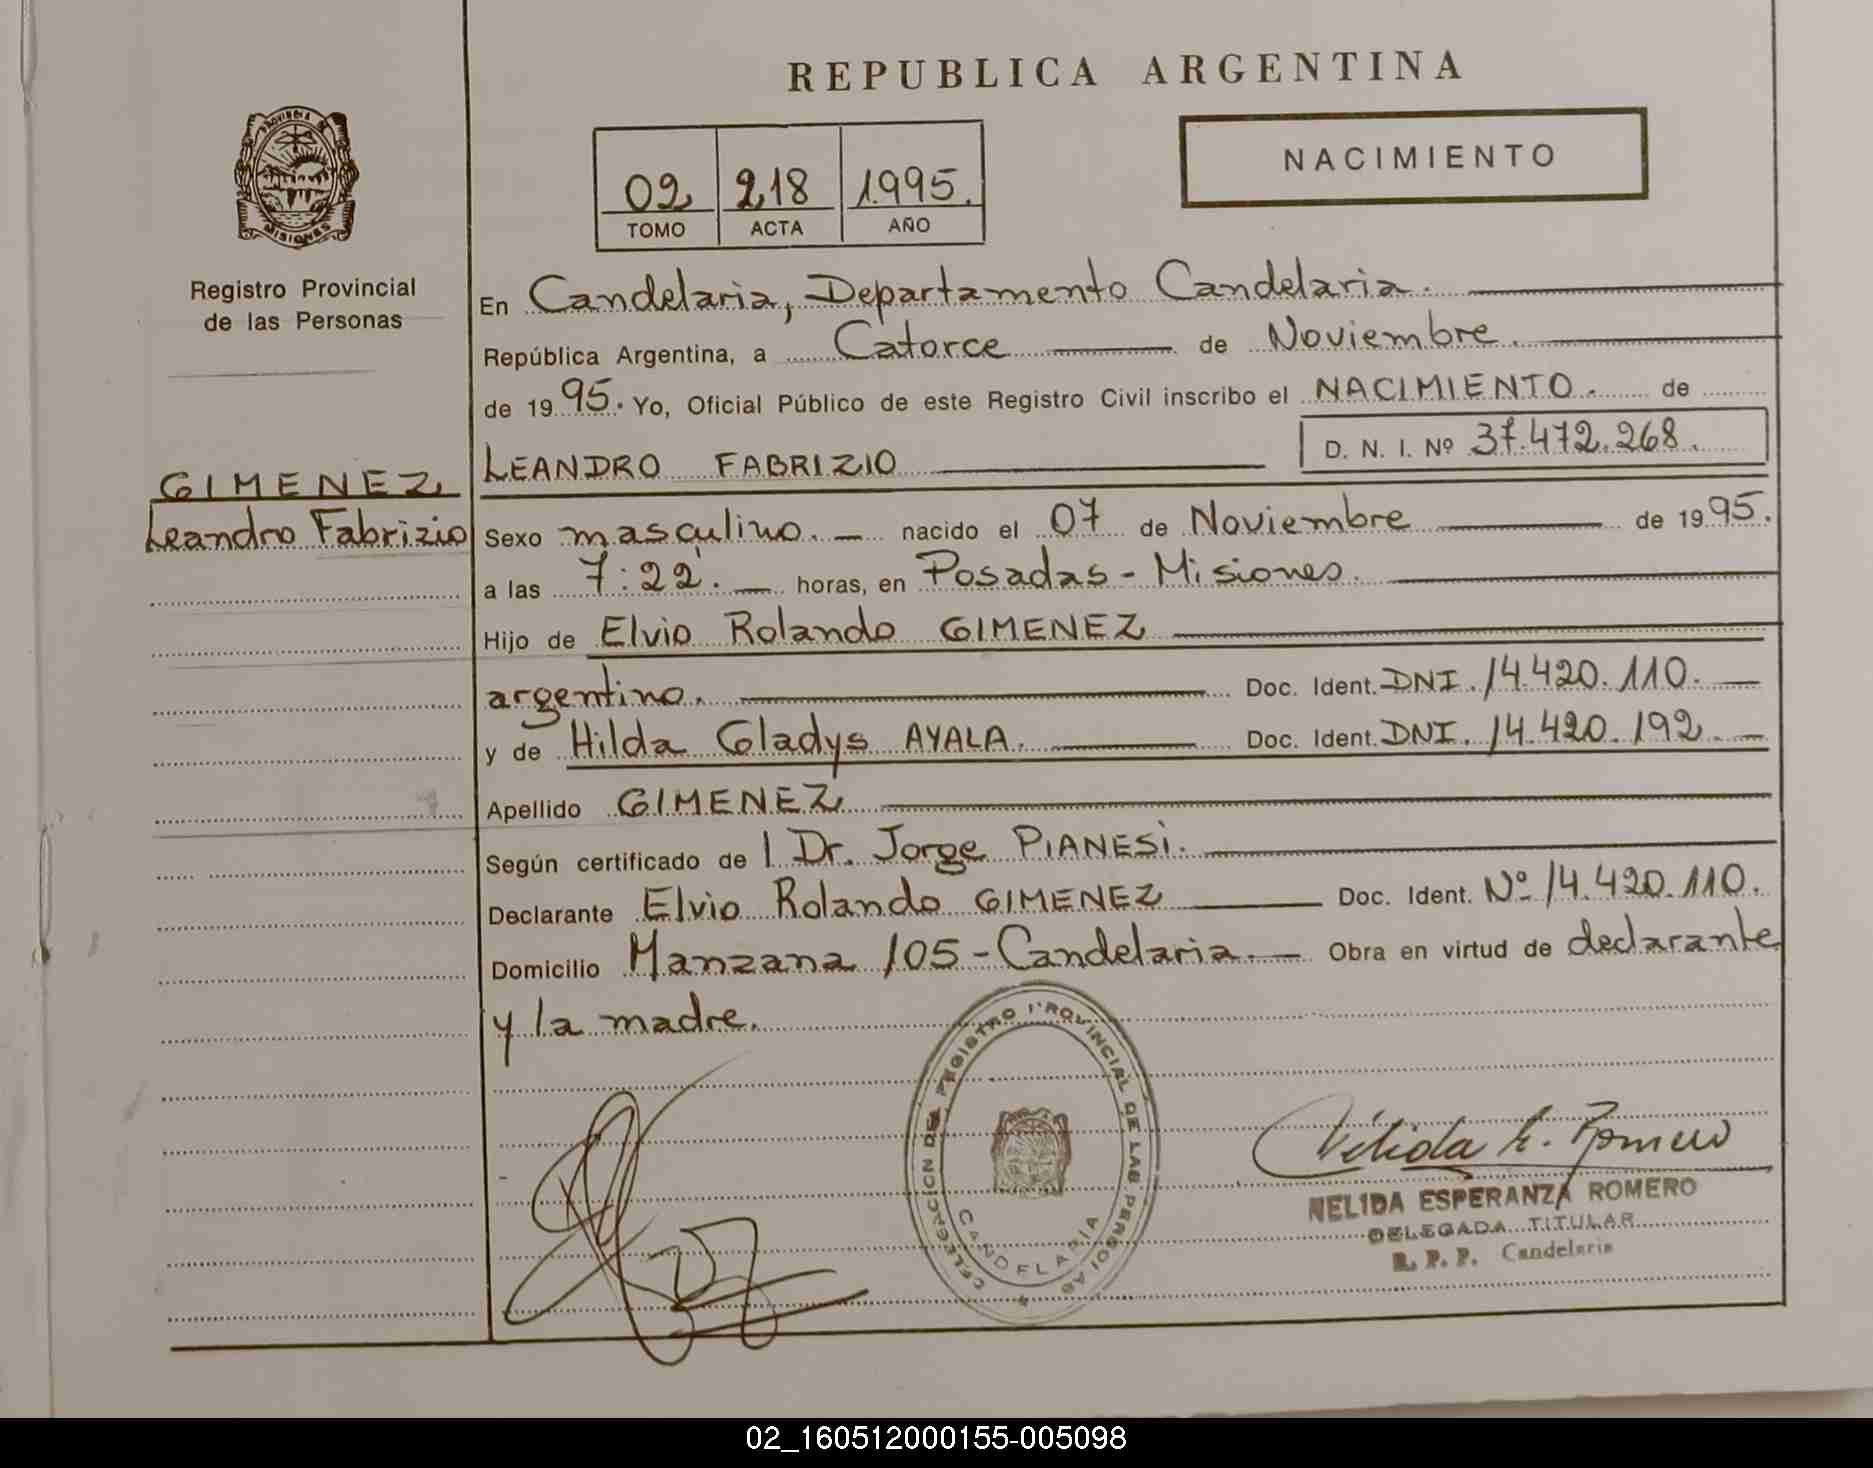 REPUBLICA ARGENTINA
NACIMIENTO
02 218 1995.
TOMO ACTA AÑO
PROVINCIA DE
MISIONES
Registro Provincial
de las Personas
GIMENEZ
Leandro Fabrizio
En Candelaria, Departamento Candelaria.
República Argentina, a Catorce de Noviembre
de 19 95. Yo, Oficial Público de este Registro Civil inscribo el NACIMIENTO. de
LEANDRO FABRIZIO D. N. I. Nº 37.472.268.
Sexo masculino. nacido el 07 de Noviembre de 19 95.
a las 7:22. horas, en Posadas - Misiones.
Hijo de Elvio Rolando GIMENEZ
argentino. Doc. Ident. DNI. 14.420.110.
y de Hilda Gladys AYALA. Doc. Ident. DNI. 14.420.192.
Apellido GIMENEZ
Según certificado de l Dr. Jorge PIANESI.
Declarante Elvio Rolando GIMENEZ Doc. Ident. Nº 14.420.110.
Domicilio Manzana 105 - Candelaria. Obra en virtud de declarante
y la madre.
DELEGACION DEL REGISTRO PROVINCIAL DE LAS PERSONAS
CANDELARIA
Nélida E. Romero
NELIDA ESPERANZA ROMERO
DELEGADA TITULAR
R. P. P. Candelaria
02_160512000155-005098